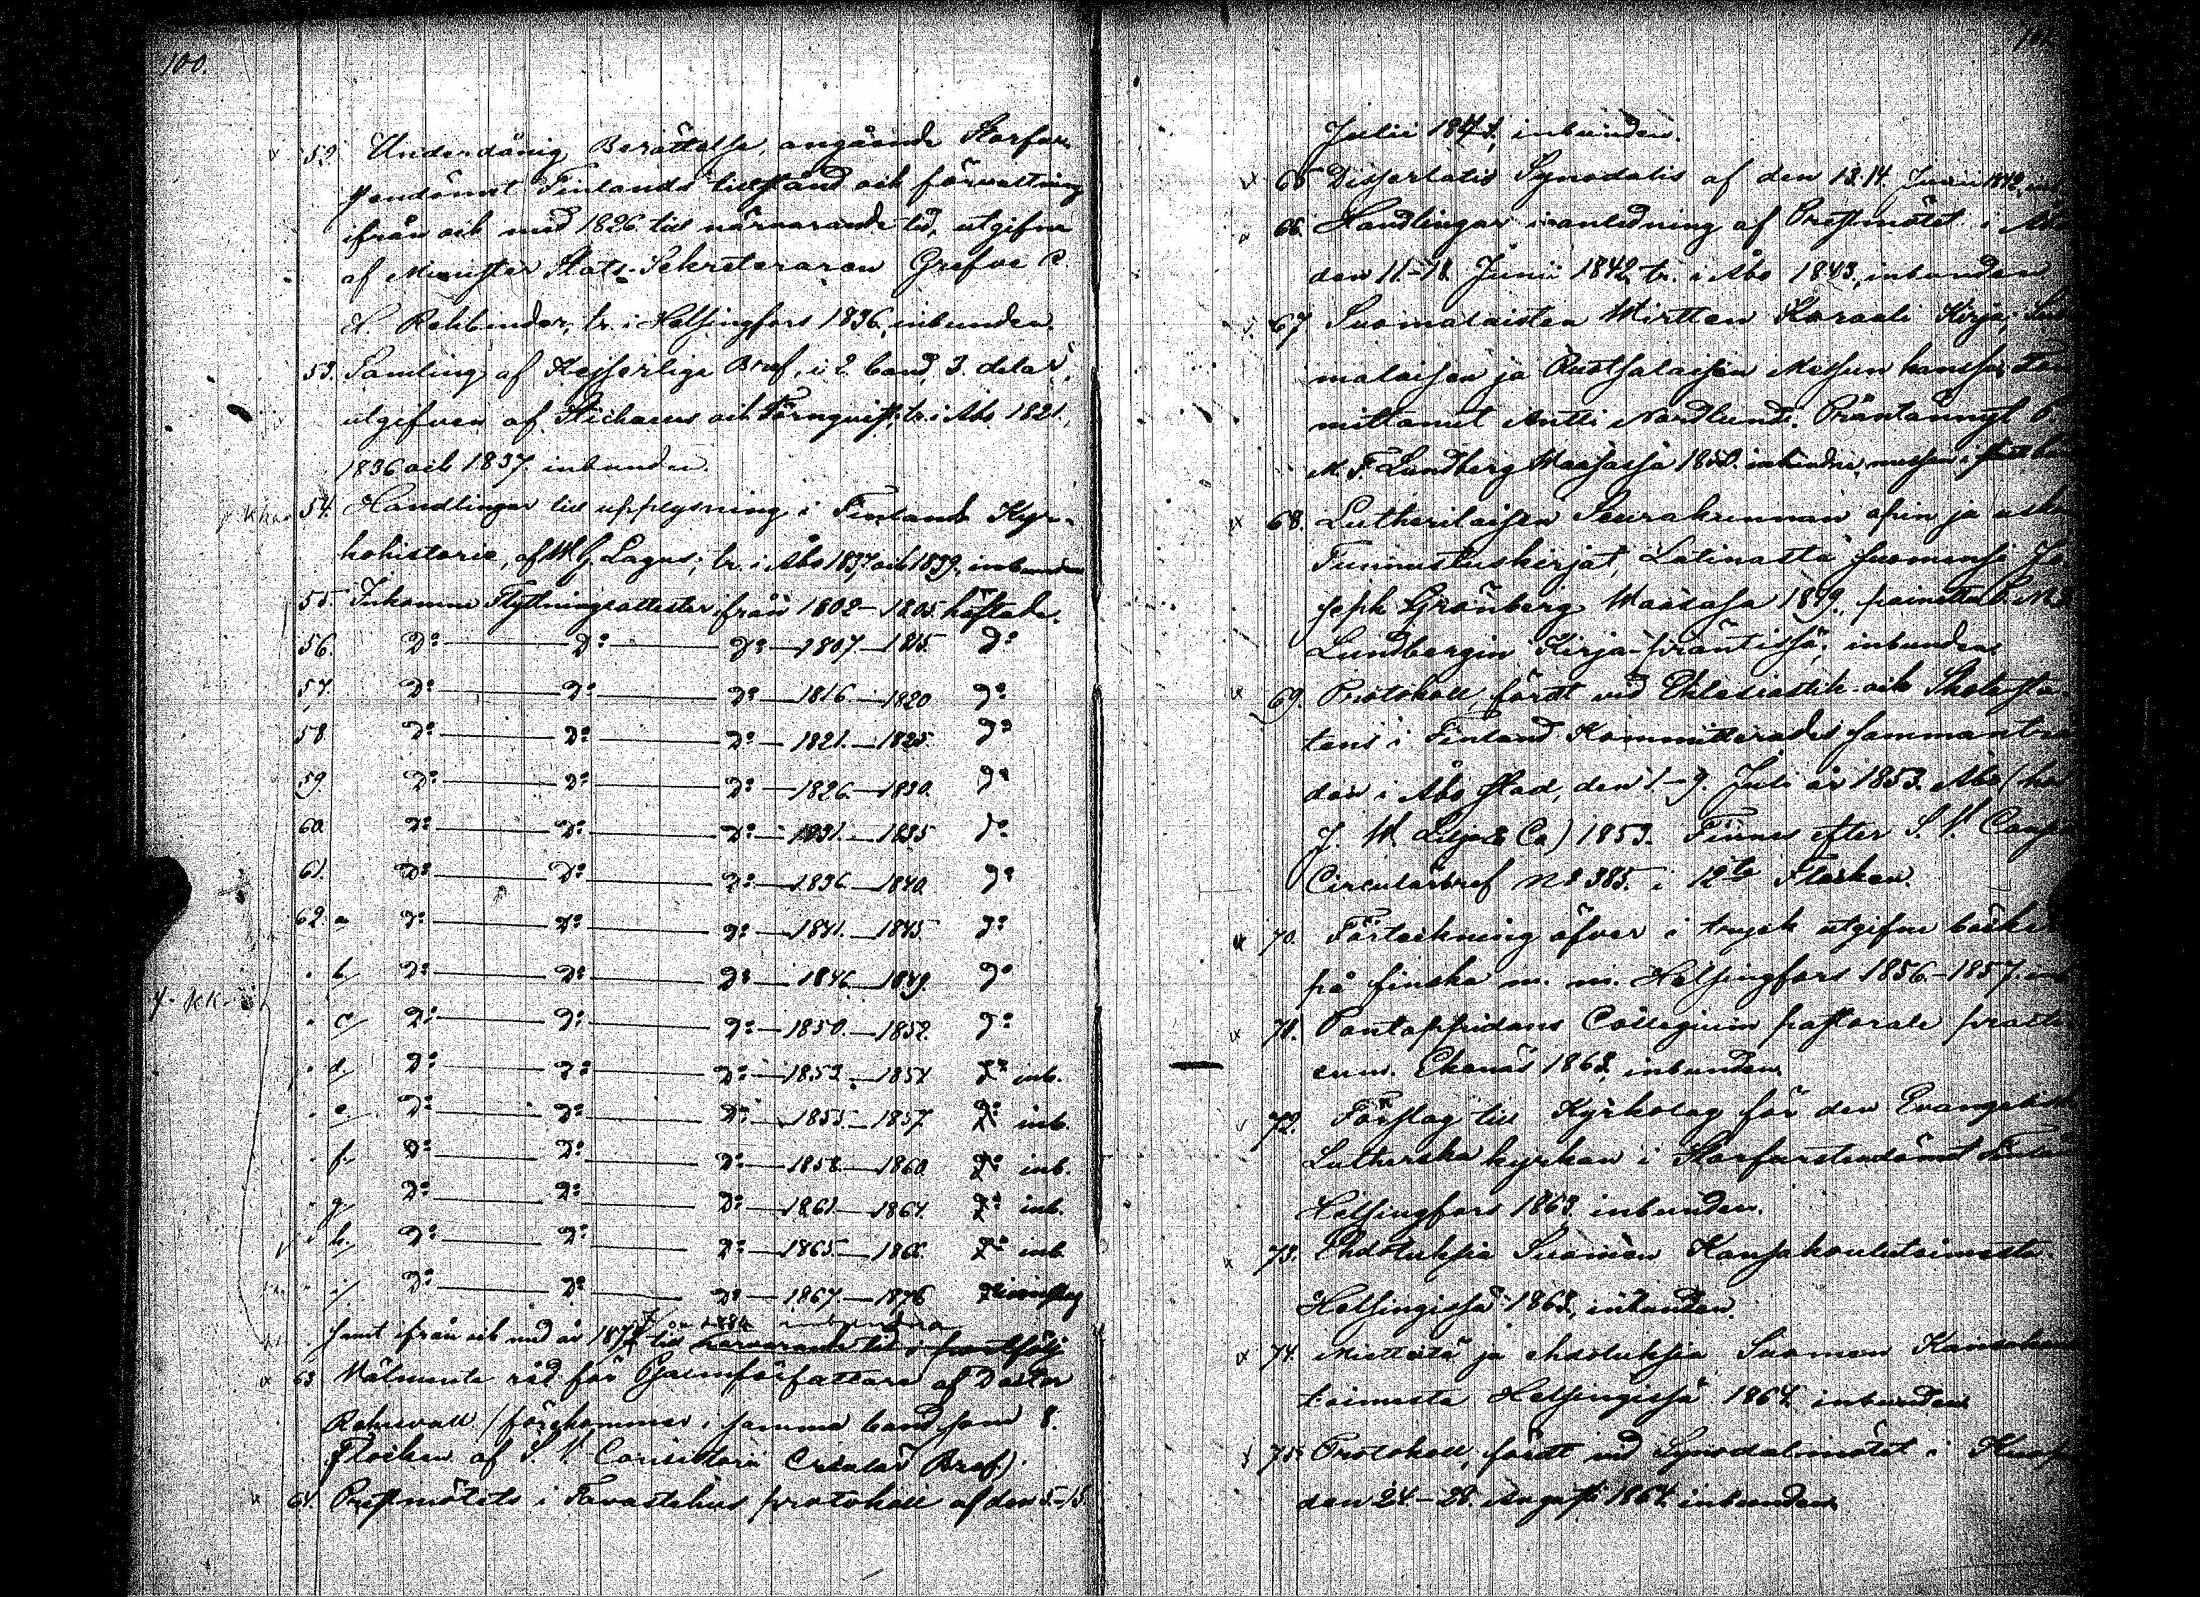 100.
52. Underdånig Berättelse, angående Storfur-
stendömet Finlands tillstånd och förvaltning
ifrån och med 1826 till närvarande tid, utgifven
af Minister Stats-Sekreteraren Grefve
R. Rehbinder, tr. i Helsingfors 1836, inbunden.
53. Samling af Kejserliga Bref, i 2 band, 3. delar,
utgifven af Stichaeus och Törnqvist, tr. i Åbo 1821,
1836 och 1837 inbunden.
54. Handlingar till upplysning i Finlands Kyr-
kohistorie, af W. G. Lagus; tr. i Åbo 1837, och 1839, inbunden
55. Inkomne Flyttningsattester ifrån 1802-1805. häftade.
56. Do Do Do 1807-1815. Do
57. Do Do Do 1816-1820 Do
58 Do Do Do 1821.-1825. Do
59 Do Do Do 1826.-1830. Do
60. Do Do Do 1831.-1835 Do
61. Do Do Do 1836-1840. Do
62. a Do Do Do 1841.-1845 Do
" b/ Do Do Do 1846.-1849. Do
" c/ Do Do Do 1850.-1852. Do
" d/ Do Do Do 1853.-1854 Do inb.
" e/ Do Do Do 1855.-1857. Do inb.
" f/ Do Do Do 1858-1860. Do inb.
" g/ Do Do Do 1861.-1864. Do inb.
" h/ Do Do Do 1865.-1866. Do inb
" i/ Do Do Do 1867.-1876
samt ifrån och med år 187 till närvarande tid i portfölj
63 Välmente råd för Psalmförfattare af Doctor
Rohnvall (förekommer i samma band som 8.
Flocken af S. V. Consistorii Circulär Bref).
64. Prestmötets i Tavastehus protokoll af den 5-15
Julii 1841, inbunden.
65 Dissertatio Synodalis af den 13.14. Junii 1842, inb
66. Handlingar i anledning af Prestmötet i Åbo
den 11-18. Junii 1842, tr. i Åbo 1843, inbunden
67 Suomalaisten Wirtten Koraali Kirja, Suo
malaisen ja Ruotsalaisen Messun kanssa, Toi
mittanut Antti Nordlund. Präntännyt C.
M. F. Lundberg Waasassa 1850. inbunden,
68. Lutherilaisen Seurakunnan opin ja uskon
Tunnustuskirjat, Latinasta suomensi Jo
seph Grönberg Waasassa 1849. painettu
Lundbergin Kirja-präntissä; inbunden
69. Protokoll, fördt vid Eklesiastik- och Skolsta-
tens i Finland Kommitterades sammanträ
der i Åbo stad, den 1.-9. Juli år 1853. Åbo (hos
J. W. Lilja & Co) 1853. Finnes efter S. V. Consis
Circulärbref No 385. i 12te Flocken.
70. Förteckning öfver i tryck utgifne böcker
på finska m. m. Helsingfors 1856-1857. inb
71. Pontoppidans Collegium pastorale practi
cum. Ekenäs 1863, inbunden,
72. Förslag till Kyrkolag för den Evangelisk
Lutherska kyrkan i Storfurstendömet Finland
Helsingfors 1863, inbunden.
73. Ehdotuksia Suomen Kansakoulutoimesta.
Helsingissä 1863, inbunden
74. Mietteitä ja ehdotuksia Suomen Kansakoulu
toimesta Helsingissä 1864. inbunden
75. Protokoll, fördt vid Synodalmötet i Kuopio
den 24-28. Augusti 1864. inbunden,